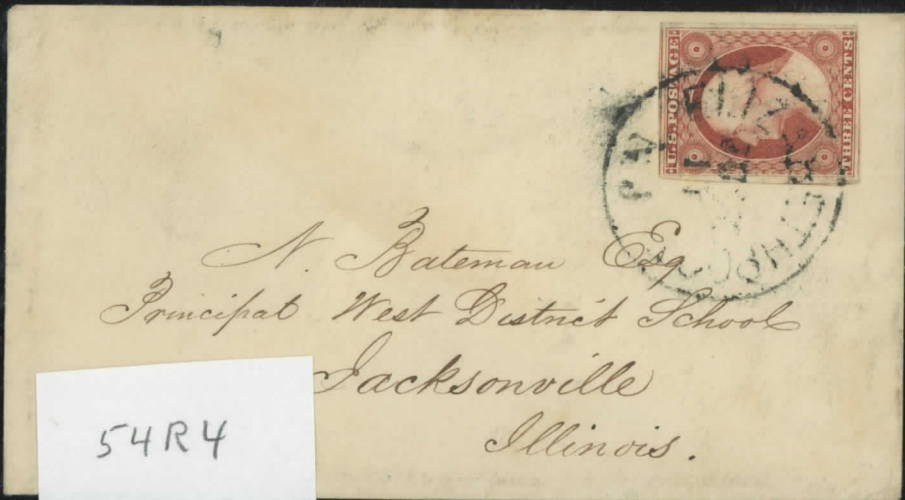 U.S. POSTAGE
THREE CENTS
ELIZABETHTOWN
N. Bateman Esq
Principal West District School
Jacksonville
Illinois.
54R4